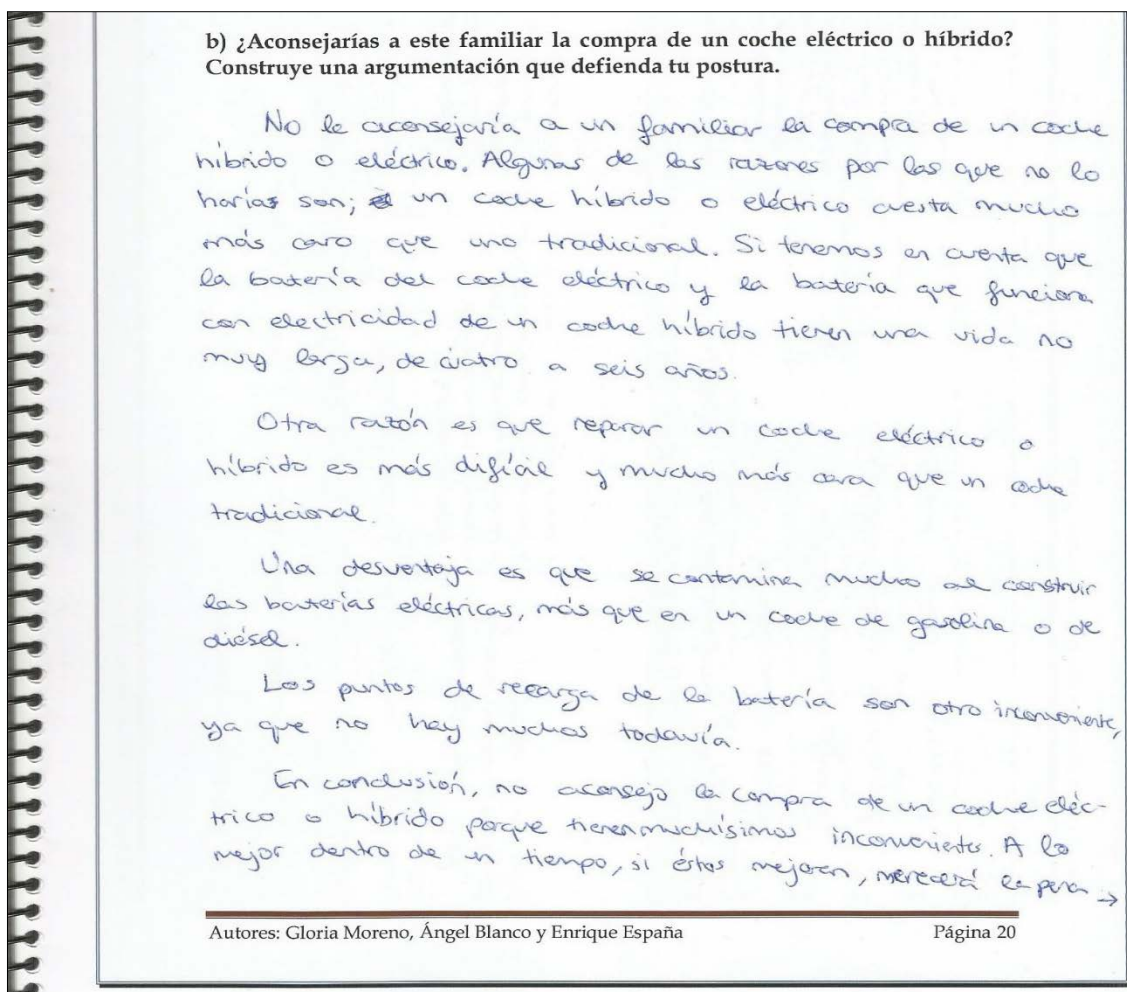 b) ¿Aconsejarías a este familiar la compra de un coche eléctrico o híbrido?
Construye una argumentación que defienda tu postura.
No le aconsejaría a un familiar la compra de un coche
híbrido o eléctrico. Algunas de las razones por las que no lo
harías son; un coche híbrido o eléctrico cuesta mucho
más caro que uno tradicional. Si tenemos en cuenta que
la batería del coche eléctrico y la batería que funciona
con electricidad de un coche híbrido tienen una vida no
muy larga, de cuatro a seis años.
Otra razón es que reparar un coche eléctrico o
híbrido es más difícil y mucho más cara que un coche
tradicional.
Una desventaja es que se contamina mucho al construir
las baterías eléctricas, más que en un coche de gasolina o de
diésel.
Los puntos de recarga de la batería son otro inconveniente,
ya que no hay muchos todavía.
En conclusión, no aconsejo la compra de un coche eléc-
trico o híbrido porque tienen muchísimos inconvenientes. A lo
mejor dentro de un tiempo, si éstos mejoran, merecerá la pena →
Autores: Gloria Moreno, Ángel Blanco y Enrique España Página 20